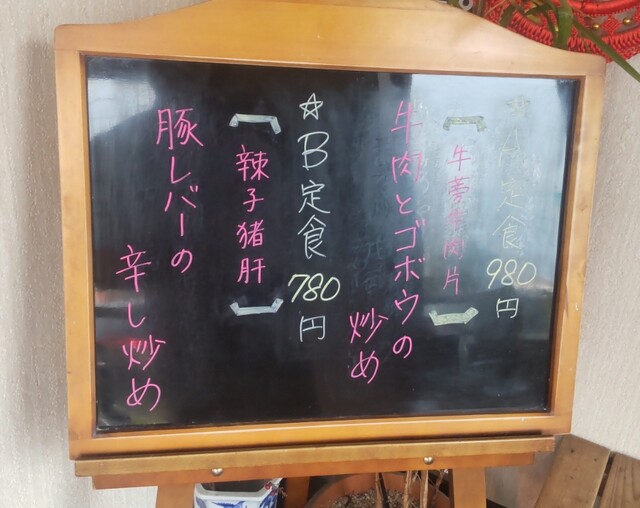 ☆A定食 980円
牛蒡牛肉片
牛肉とゴボウの
炒め
☆B定食 780円
辣子猪肝
豚レバーの
辛し炒め